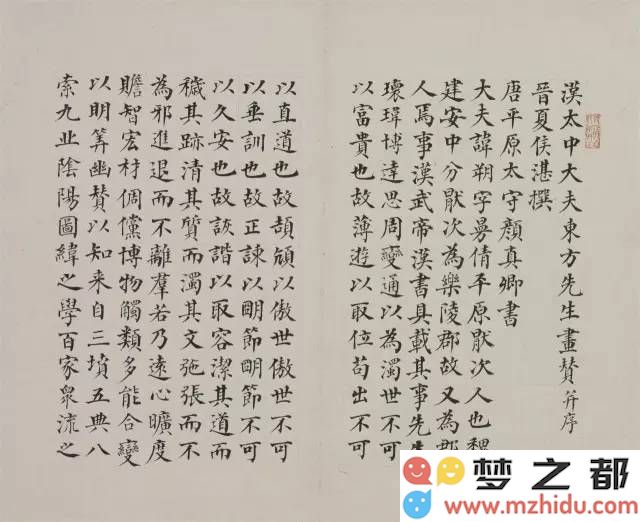 漢太中大夫東方先生畫贊并序
晉夏侯湛撰
唐平原太守顏真卿書
大夫諱朔字曼倩平原猒次人也魏
建安中分猒次為樂陵郡故又為郡
人焉事漢武帝漢書具載其事先生
瓌瑋博達思周變通以為濁世不可
以富貴也故薄遊以取位苟出不可
以直道也故頡頏以傲世傲世不可
以垂訓也故正諫以明節明節不可
以久安也故詼諧以取容潔其道而
穢其跡清其質而濁其文弛張而不
為邪進退而不離羣若乃遠心曠度
贍智宏材倜儻博物觸類多能合變
以明筭幽贊以知来自三墳五典八
索九丘陰陽圖緯之學百家眾流之
梦之都
www.mzhidu.com